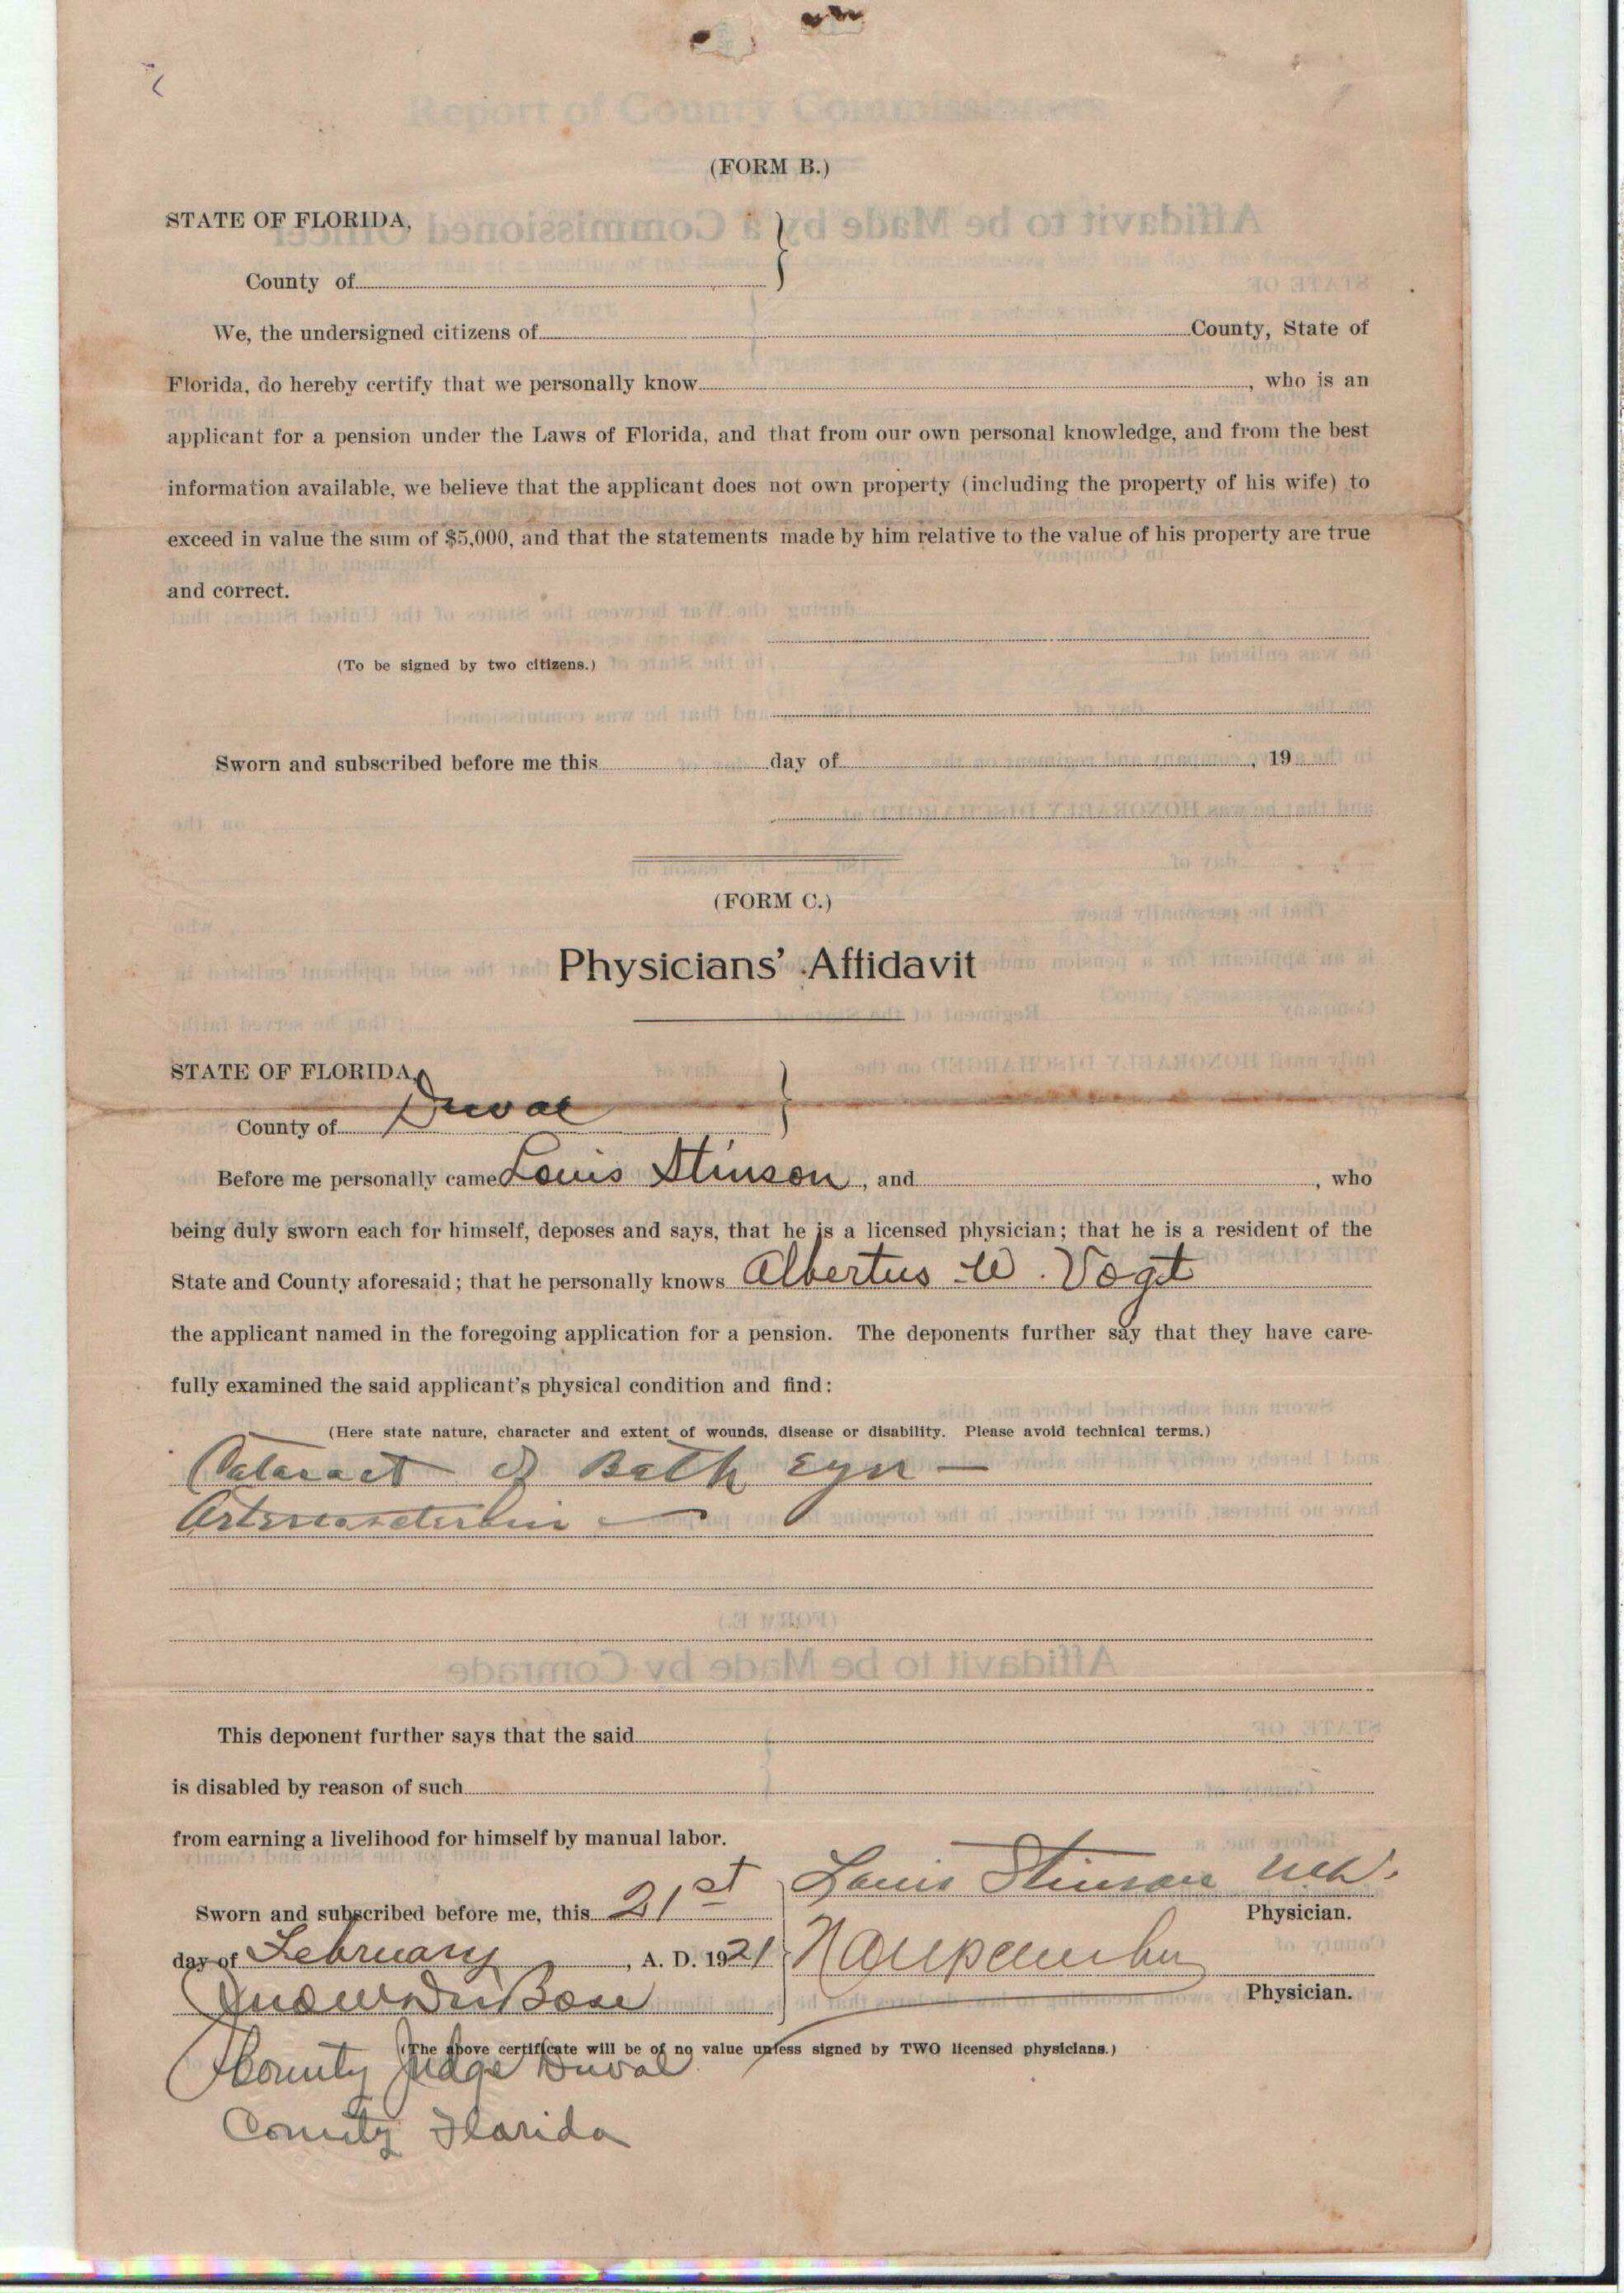 (FORM B.)
STATE OF FLORIDA,
County of
We, the undersigned citizens of County, State of
Florida, do hereby certify that we personally know , who is an
applicant for a pension under the Laws of Florida, and that from our own personal knowledge, and from the best
information available, we believe that the applicant does not own property (including the property of his wife) to
exceed in value the sum of $5,000, and that the statements made by him relative to the value of his property are true
and correct.
(To be signed by two citizens.)
Sworn and subscribed before me this day of , 19
(FORM C.)
Physicians' Affidavit
STATE OF FLORIDA,
County of Duval
Before me personally came Louis Stinson, and , who
being duly sworn each for himself, deposes and says, that he is a licensed physician; that he is a resident of the
State and County aforesaid; that he personally knows Albertus W. Vogt
the applicant named in the foregoing application for a pension. The deponents further say that they have care-
fully examined the said applicant's physical condition and find:
(Here state nature, character and extent of wounds, disease or disability. Please avoid technical terms.)
Cataract of Both Eyes —
This deponent further says that the said
is disabled by reason of such
from earning a livelihood for himself by manual labor.
Louis Stinson M.D.
Sworn and subscribed before me, this 21st Physician.
day of February, A. D. 1921
Physician.
(The above certificate will be of no value unless signed by TWO licensed physicians.)
County Judge Duval
County Florida